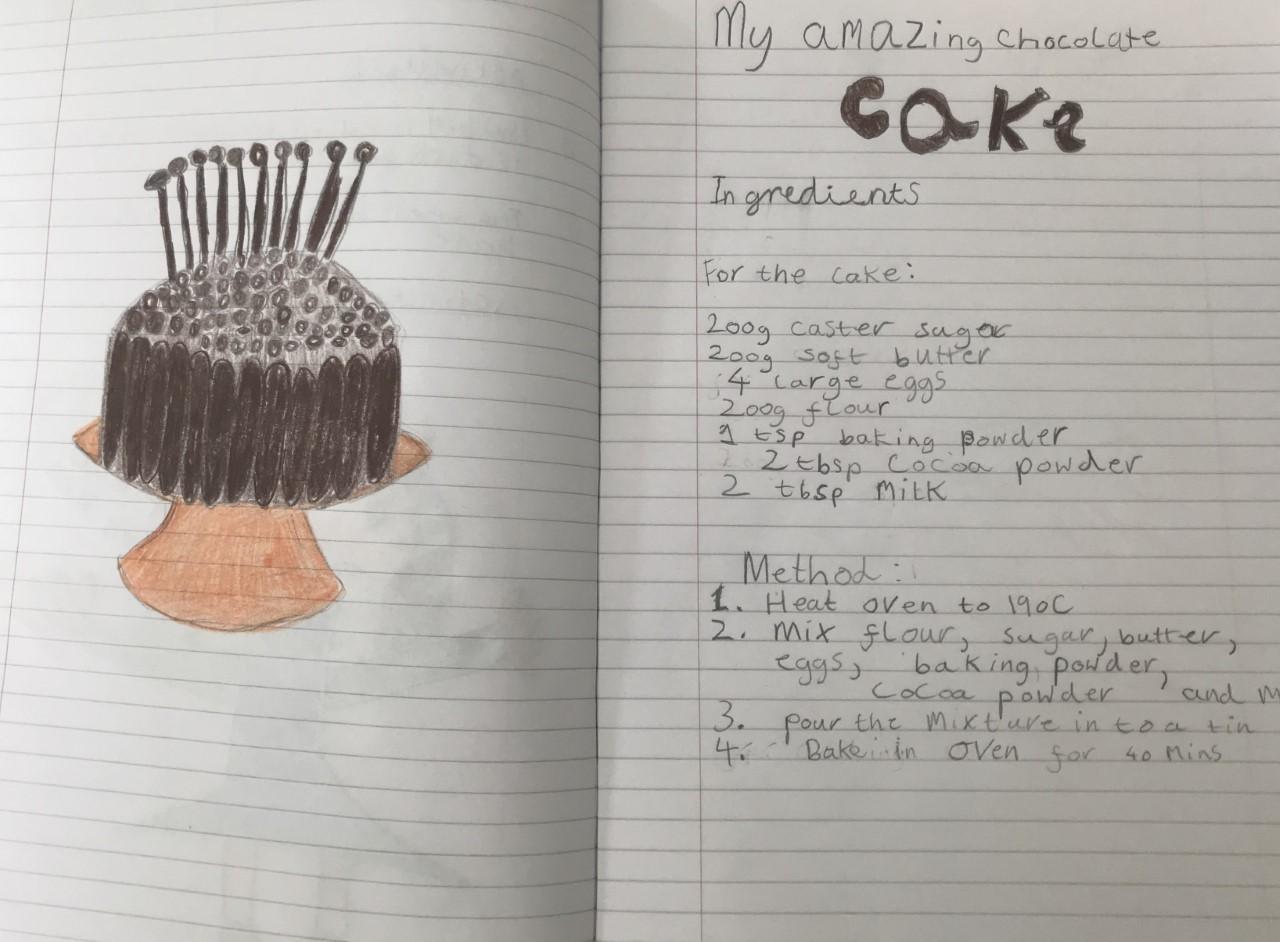 My amazing chocolate
cake
Ingredients
For the cake:
200g caster suger
200g soft butter
4 large eggs
200g flour
1 tsp baking powder
2 tbsp cocoa powder
2 tbsp milk
Method:
1. Heat oven to 190C
2. mix flour, sugar, butter,
eggs, baking powder,
cocoa powder and
3. pour the mixture in to a tin
4. Bake in oven for 40 mins